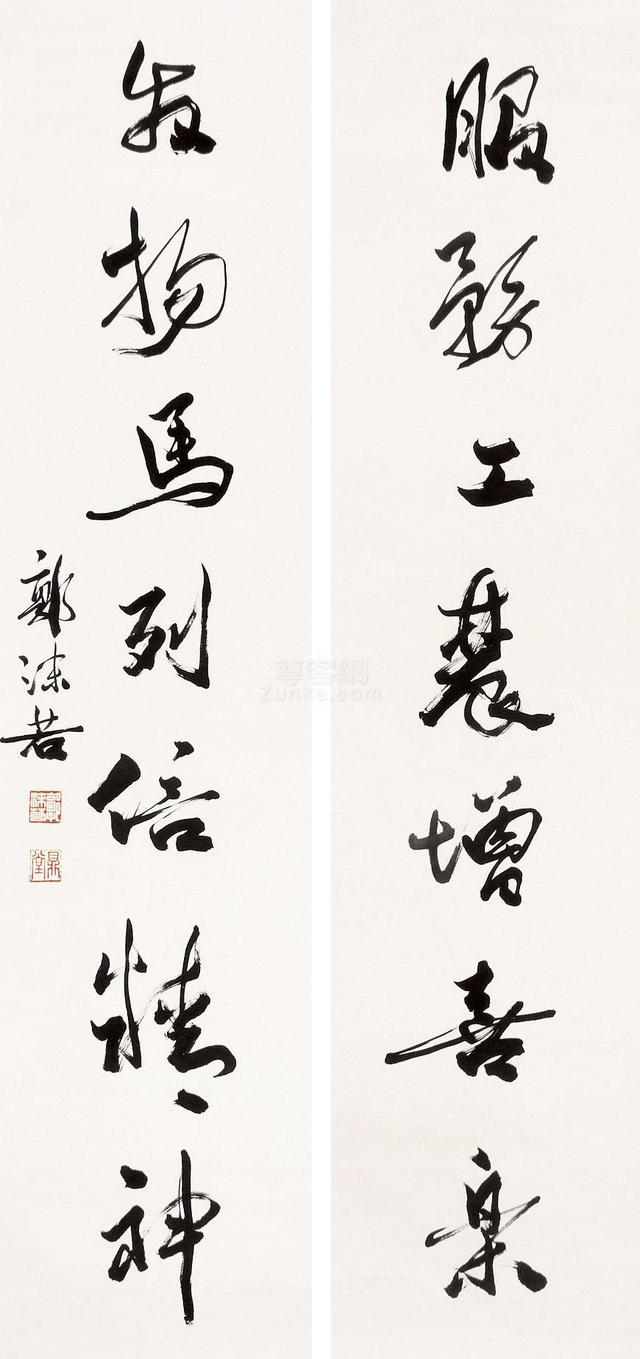 服務工農增喜樂
發揚馬列倍精神
郭沫若
鼎堂
尊客網
Zunke.com